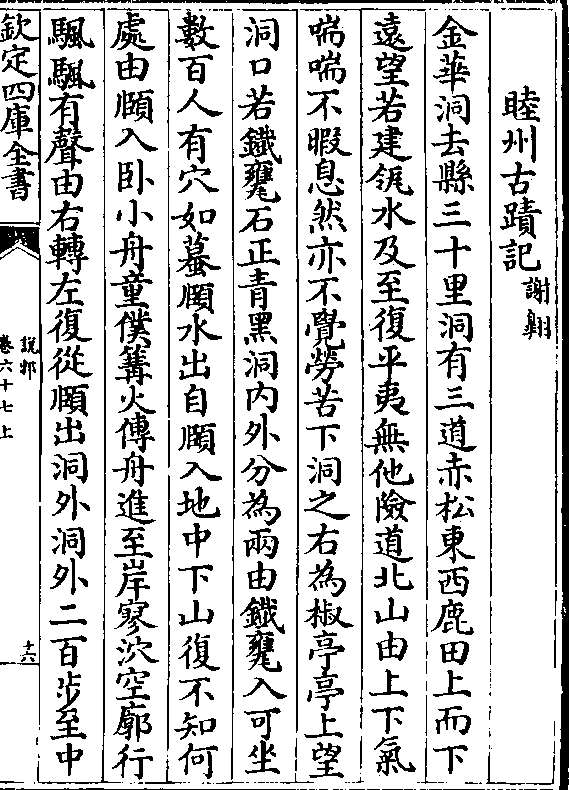 睦州古蹟記謝翺
金華洞去縣三十里洞有三道赤松東西鹿田上而下
遠望若建瓴水及至復平夷無他險道北山由上下氣
喘喘不暇息然亦不覺勞苦下洞之右為椒亭亭上望
洞口若鐵甕石正青黑洞内外分為兩由鐵甕入可坐
數百人有穴如蟇頤水出自頤入地中下山復不知何
處由頤入卧小舟童僕篝火傳舟進至岸寥泬空廓行
颿颿有聲由右轉左復從頤出洞外洞外二百步至中
欽定四庫全書
説郛
卷六十七上
十六